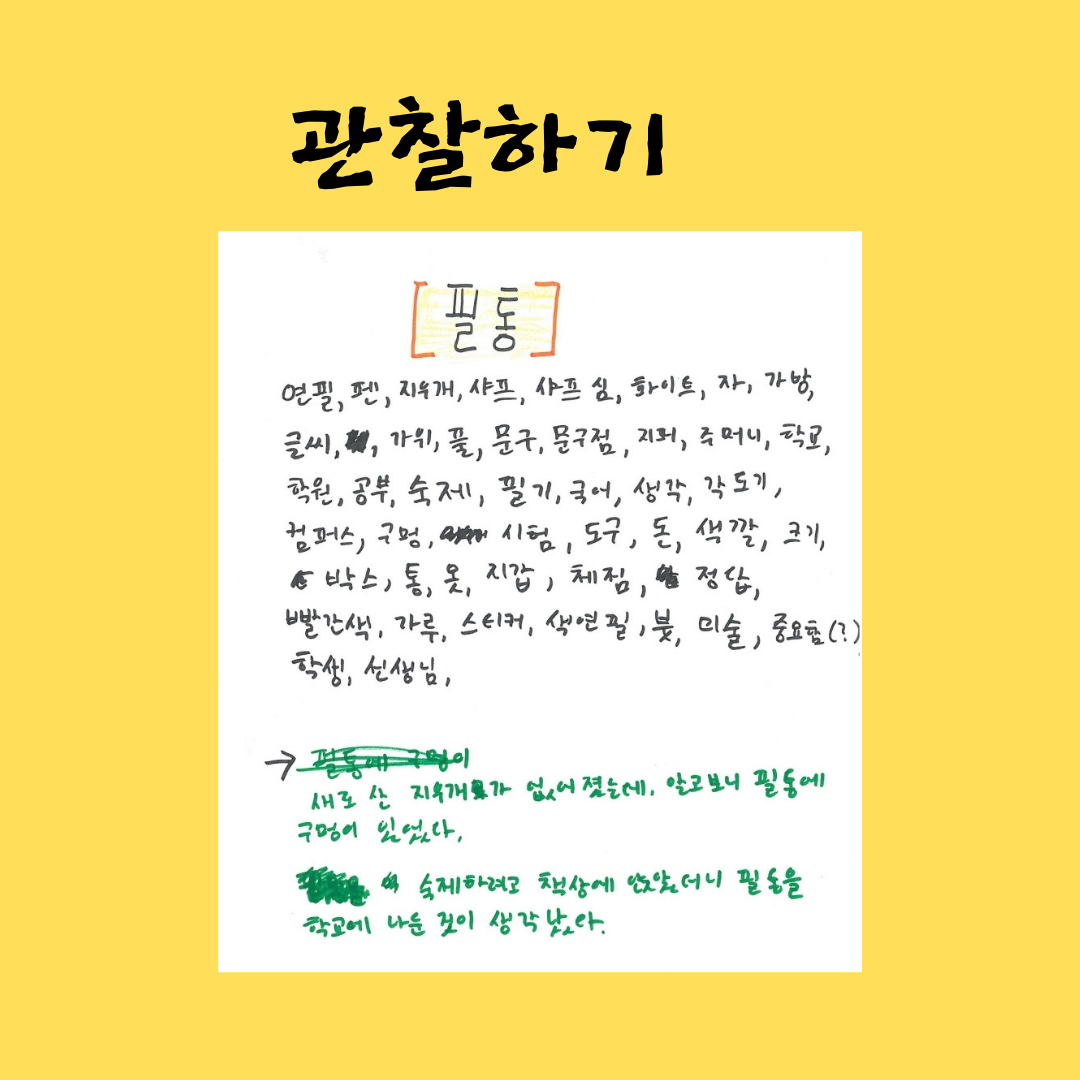 관찰하기
[필통]
연필, 펜, 지우개, 샤프, 샤프 심, 화이트, 자, 가방,
글씨, 가위, 풀, 문구, 문구점, 지퍼, 주머니, 학교,
학원, 공부, 숙제, 필기, 국어, 생각, 각도기,
컴퍼스, 구멍, 시험, 도구, 돈, 색깔, 크기,
박스, 통, 옷, 지갑, 체점, 정답,
빨간색, 가루, 스티커, 색연필, 붓, 미술, 중요함(?)
학생, 선생님,
→ 필통에 구멍이
새로 산 지우개가 없어졌는데, 알고보니 필통에
구멍이 있었다.
숙제하려고 책상에 앉았더니 필통을
학교에 나둔 것이 생각났다.